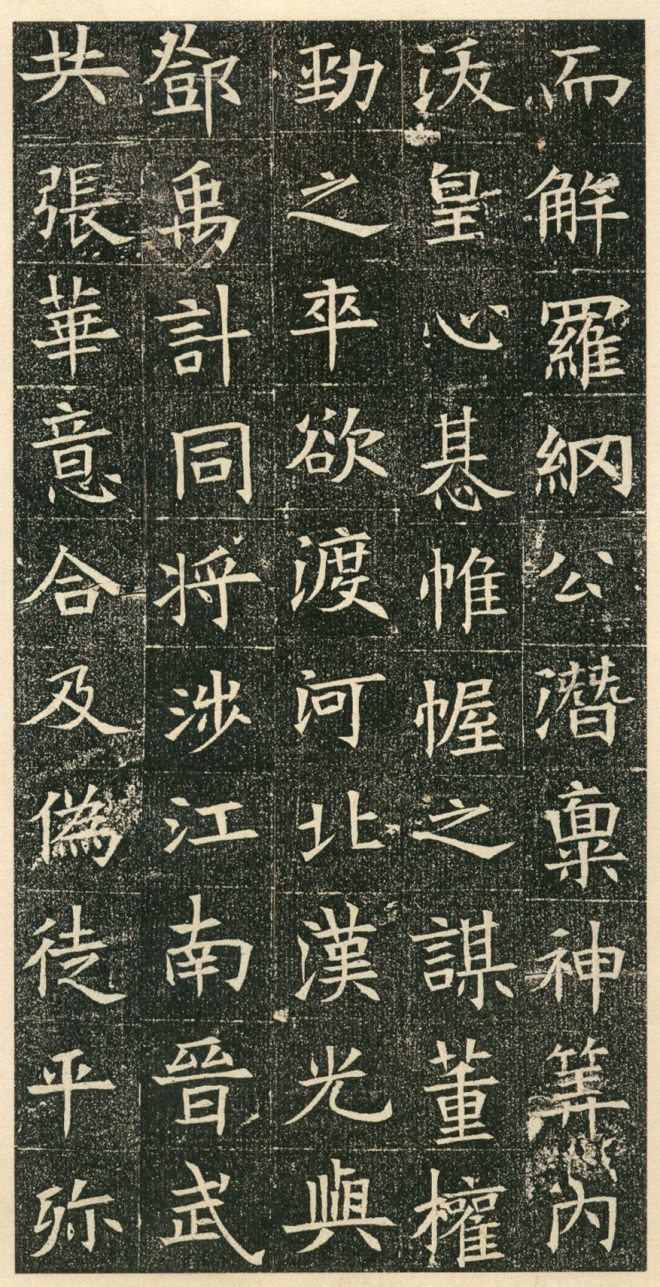 而解羅網公潛稟神筭內
沃皇心惎帷幄之謀董權
勁之卒欲渡河北漢光與
鄧禹計同将涉江南晉武
共張華意合及偽徒平殄